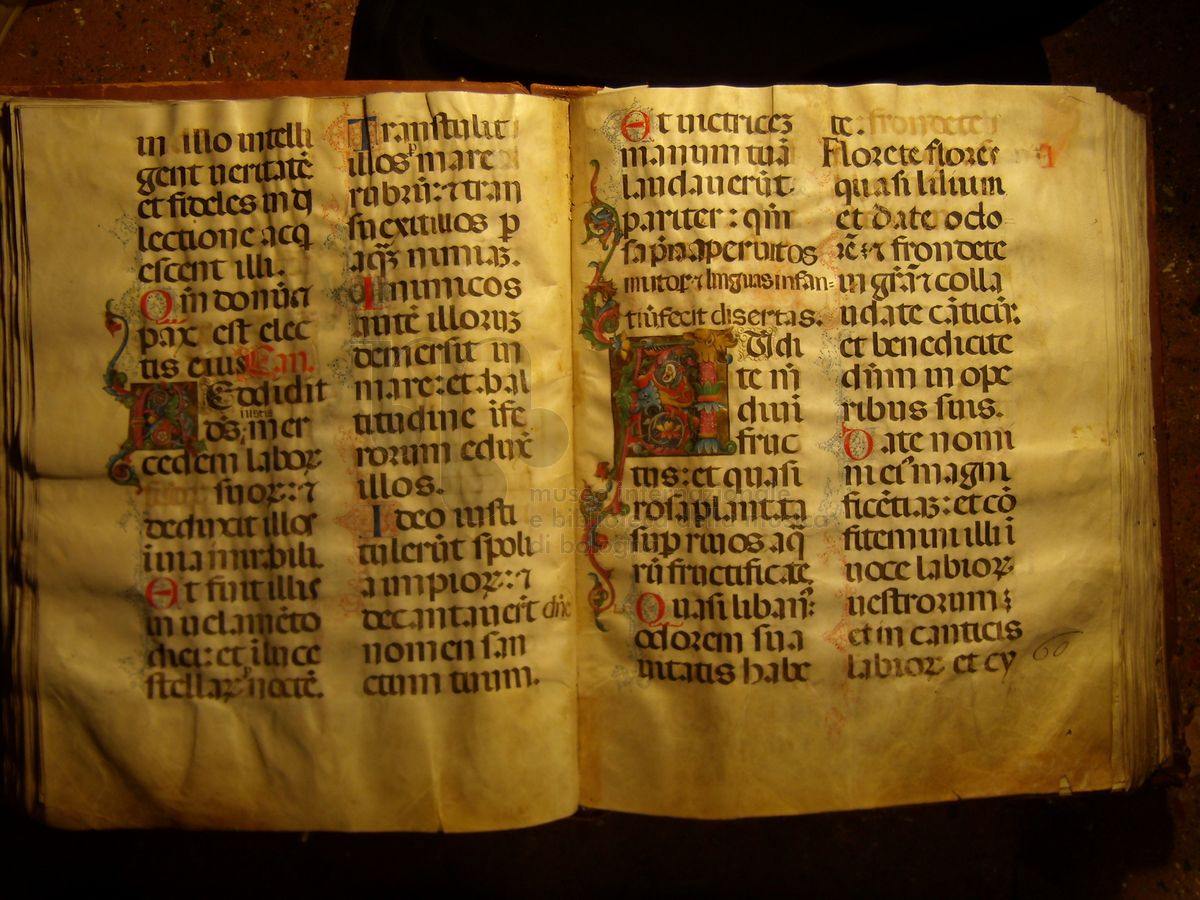 in illo intelli
gent ueritatē
et fideles in di
lectione acq̄
escent illi.
Qm̄ donū et
pax est elec
tis eius Can.
Reddidit
iustis
ds̄ mer
cedem labor
suoꝝ: ⁊
deduxit illos
in uia mirabili.
Et fuit illis
in uelamēto
diei: et in luce
stellaꝝ p noctē.
Transtulit
illos p mare
rubrū: ⁊ tran
suexit illos p
aquā nimiaꝫ.
Inimicos
autē illoruꝫ
demersit in
mare: et ab al
titudine īfe
rorum eduxit
illos.
Ideo iusti
tulerūt spoli
a impioꝝ: ⁊
decantauerūt dn̄e
nomen san
ctum tuum.
Et uictriceꝫ
manum tuā
laudauerūt
pariter: qm̄
sapīa aperuit os
mutoꝝ ⁊ linguas infan=
tiū fecit disertas.
Audi
te m̄
diuī
fruc
tus: et quasi
rosa plantata
sup riuos aq̄
rū fructificate
Quasi libanꝰ
odorem sua
uitatis habe
te:
Florete flores
quasi lilium
et date odo
rē: ⁊ frondete
in grām ⁊ colla
udate cāticū:
et benedicite
dn̄m in ope
ribus suis.
Date nomi
ni eiꝰ magni
ficētiaꝫ: et cō
fitemini illi ī
uoce labioꝝ
uestrorum:
et in canticis
labioꝝ et cy
60
museo internazionale
e biblioteca della musica
di bologna